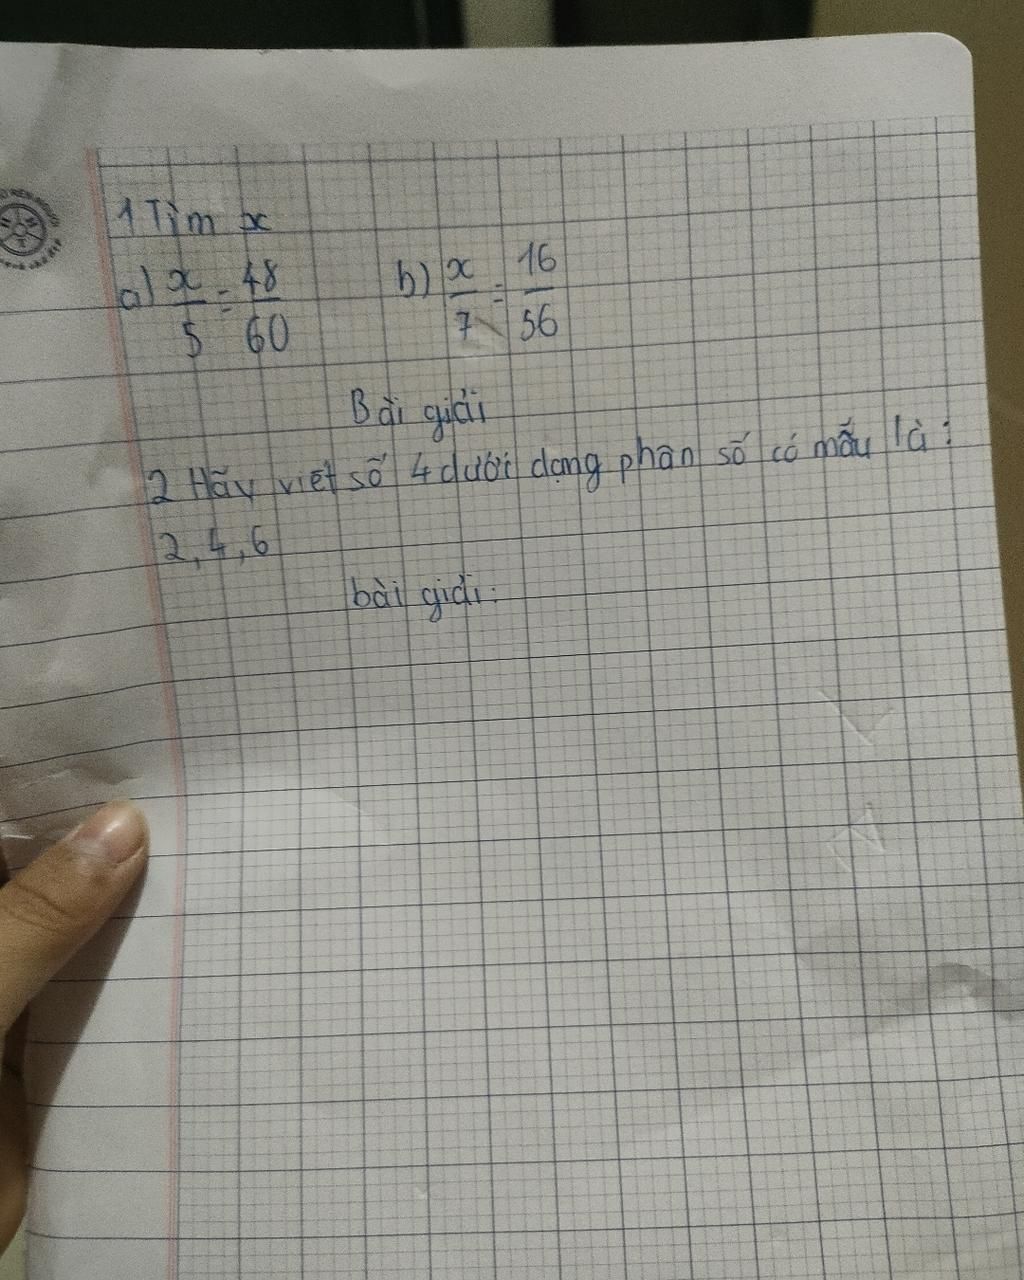 1 Tìm x
a) x/5 = 48/60 b) x/7 = 16/56
Bài giải
2 Hãy viết số 4 dưới dạng phân số có mẫu là:
2, 4, 6
bài giải: